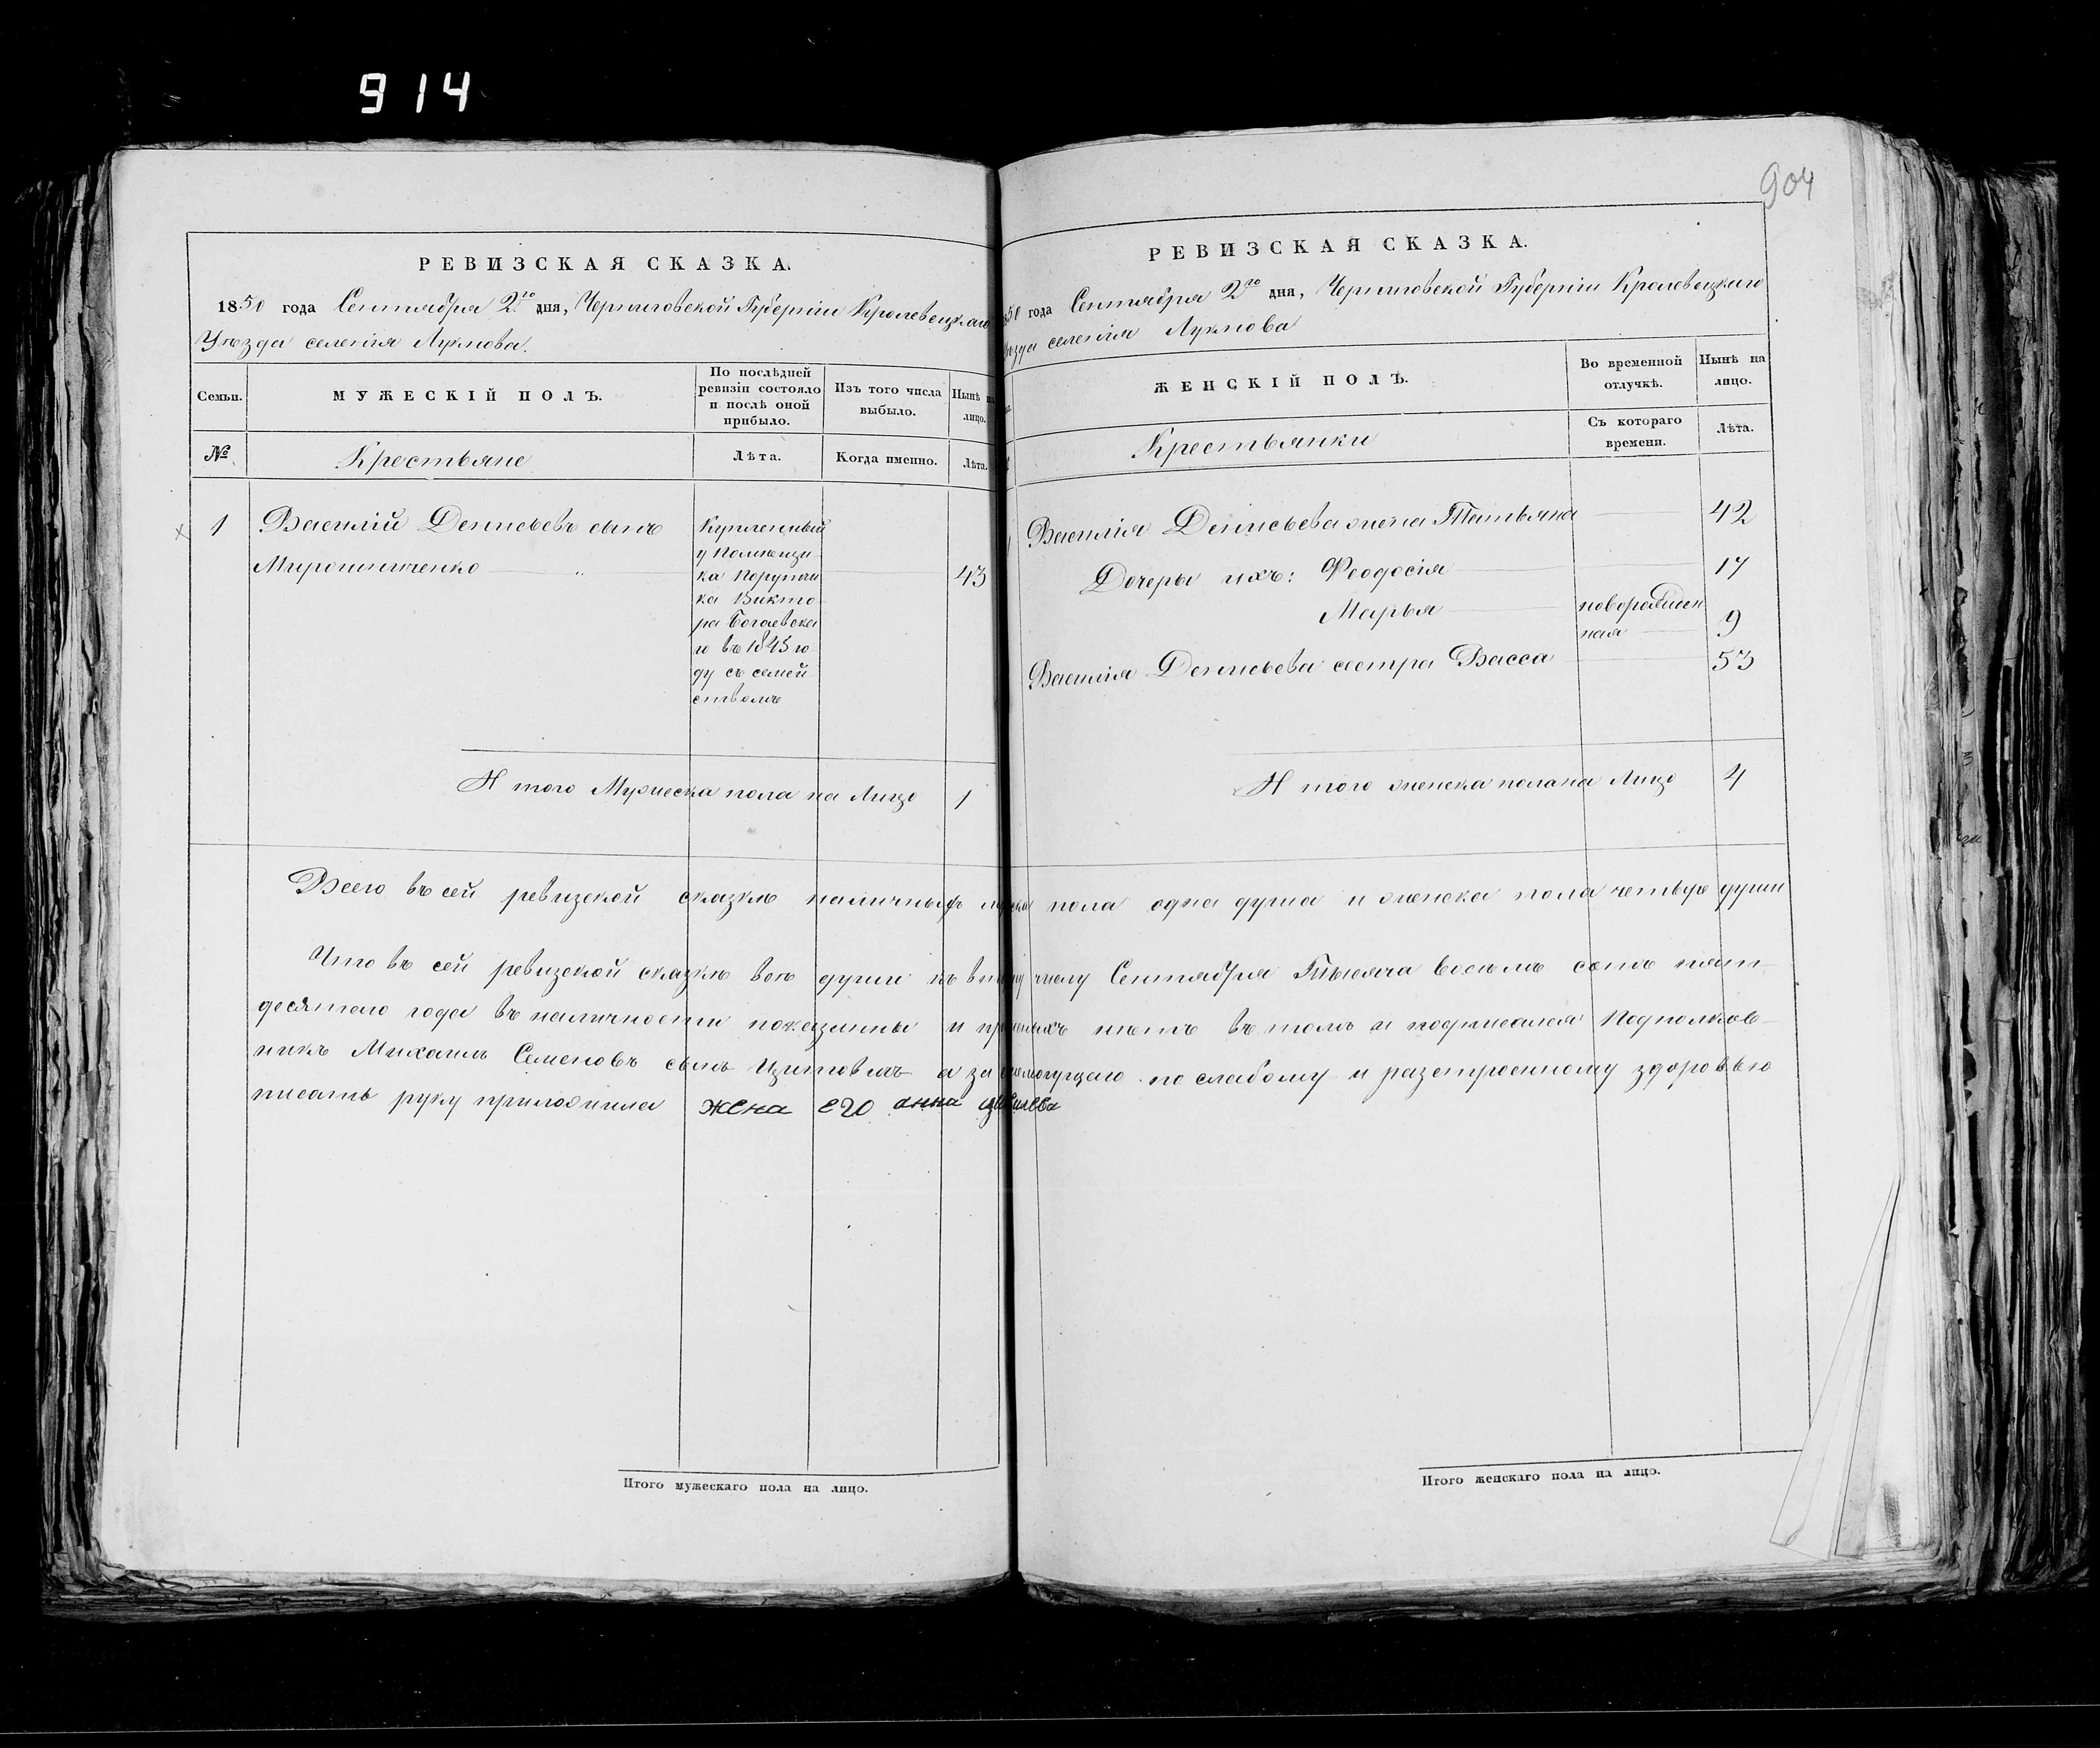 914
904
РЕВИЗСКАЯ СКАЗКА.
1850 года Сентября 2го дня, Черниговской Губерніи Кролевецкаго
Уѣзда селенія Лукнова.
Семьи.
МУЖЕСКІЙ ПОЛЪ.
По послѣдней
ревизіи состояло
и послѣ оной
прибыло.
Изъ того числа
выбыло.
Нынѣ на
лицо.
№
Крестьяне
Лѣта.
Когда именно.
Лѣта.
1 Василій Денисьевъ сынъ
Мирошниченко 43
Купленный
у Помѣщи-
ка Поручи
ка Викто
ра Богаевска
го въ 1845 го
ду съ семей
ствомъ
И того Мужеска пола на Лицо 1
РЕВИЗСКАЯ СКАЗКА.
50 года Сентября 2го дня, Черниговской Губерніи Кролевецкаго
ѣзда селенія Лукнова
ЖЕНСКІЙ ПОЛЪ.
Во временной
отлучкѣ.
Нынѣ на
лицо.
Крестьянки
Съ котораго
времени.
Лѣта.
Василія Денисьева жена Татьяна 42
Дочеры ихъ: Феодосія 17
Марья новорожден
ная 9
Василія Денисьева сестра Васса 53
И того женска пола на Лицо 4
Всего въ сей ревизской сказкѣ наличныхъ пола одна душа и женска пола четыре души
Что въ сей ревизской сказкѣ всѣ души къ числу Сентября Тысяча восемь сотъ пяти-
десятаго года въ наличности показанны и нѣтъ въ томъ и подписался Подполков-
никъ Михаилъ Семеновъ сынъ а за немогущаго по слабому и разстроенному здоровью
писать руку приложила жена его анна
Итого мужескаго пола на лицо.
Итого женскаго пола на лицо.